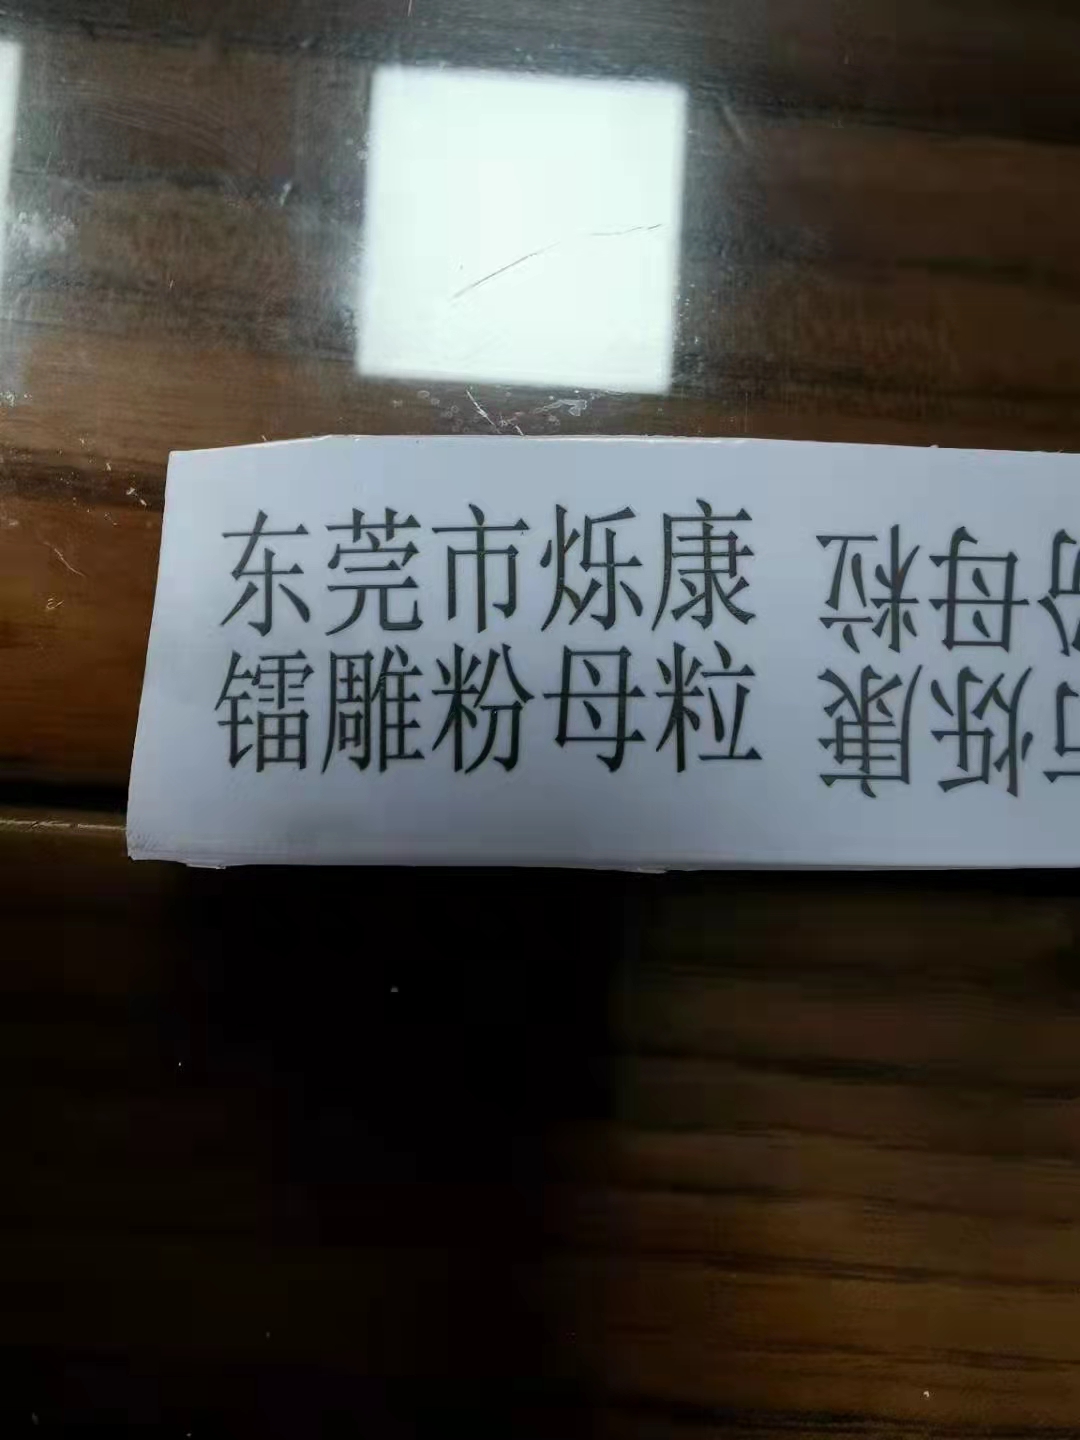 东莞市烁康
镭雕粉母粒
市烁康
粉母粒